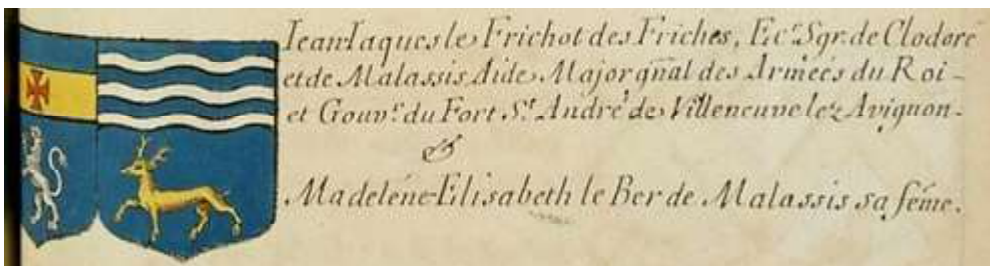 Jean Jaques le Frichot des Friches, Ecr. Sgr. de Clodoré
et de Malassis Aide Major gñal des Armées du Roi
et Gouvr. du Fort St. André de Villeneuve lez Avignon.
&
Madeléne-Elisabeth le Ber de Malassis sa féme.